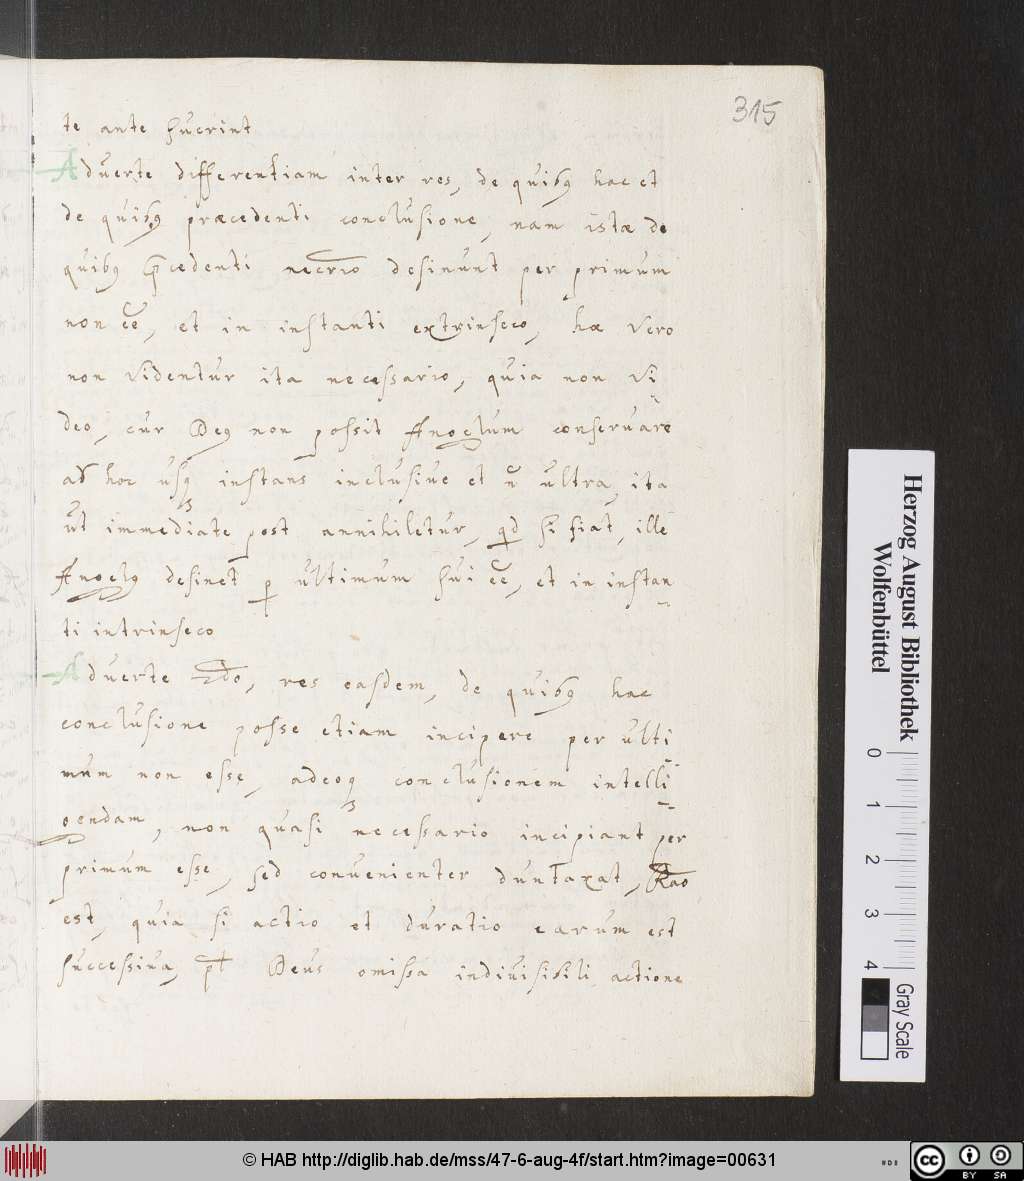 315
te ante fuerint
Aduerte differentiam inter res, de quibꝯ hac et
de quibꝯ præcedenti conclusione, nam istæ de
quibꝯ p̄cedenti necrio desinunt per primum
non ēē, et in instanti extrinseco, hæ vero
non videntur ita necessario, quia non vi
deo, cur Deꝯ non possit Angelum conseruare
ad hoc usqꝫ instans inclusiue et ñ ultra, ita
ut immediate post annihiletur, qd si fiat, ille
Angelꝯ desinet ꝑ ultimum sui ēē, et in instan
ti intrinseco
Aduerte 2do, res easdem, de quibꝯ hac
conclusione posse etiam incipere per ulti
mum non esse, adeoqꝫ conclusionem intelli
gendam, non quasi necessario incipiant per
primum esse, sed conuenienter duntaxat, Rao
est, quia si actio et duratio earum est
successiua, pt Deus omissa indiuisibili actione
Herzog August Bibliothek
Wolfenbüttel
0 1 2 3 4
Gray Scale
© HAB http://diglib.hab.de/mss/47-6-aug-4f/start.htm?image=00631
cc BY SA